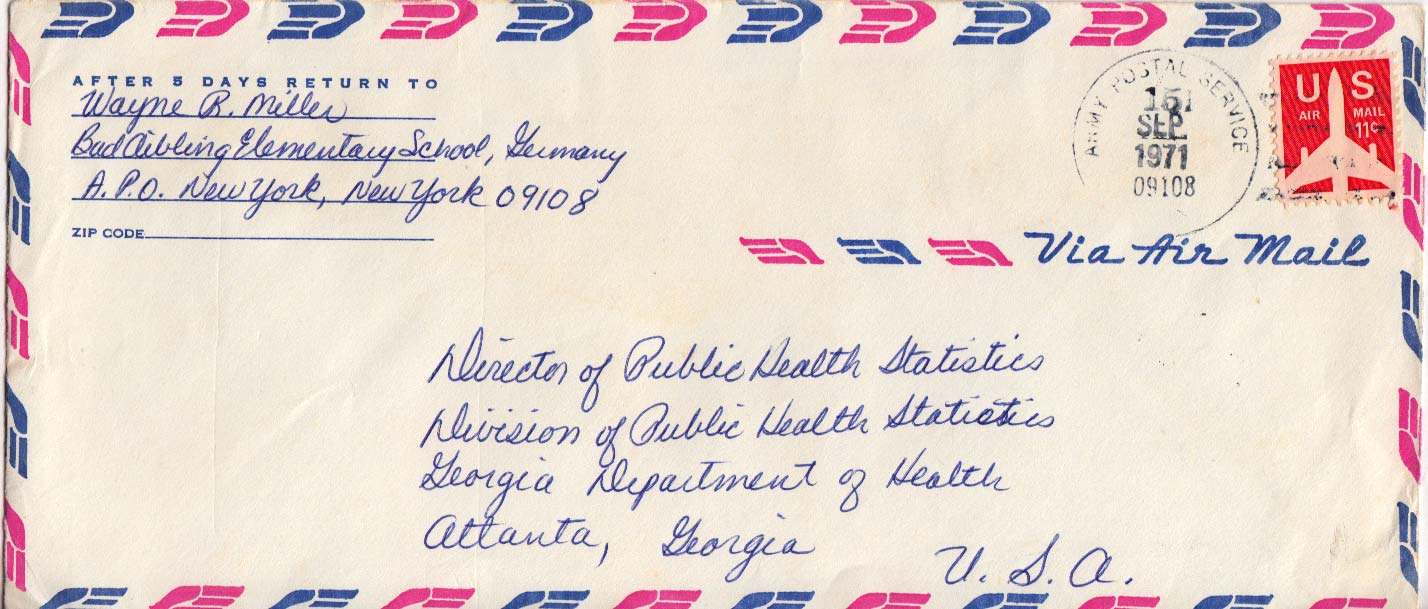 AFTER 5 DAYS RETURN TO
Wayne R. Miller
Bad Aibling Elementary School, Germany
A.P.O. New York, New York 09108
ZIP CODE
ARMY POSTAL SERVICE
15
SEP
1971
09108
US
AIR MAIL
11¢
Via Air Mail
Director of Public Health Statistics
Division of Public Health Statistics
Georgia Department of Health
Atlanta, Georgia
U. S. A.